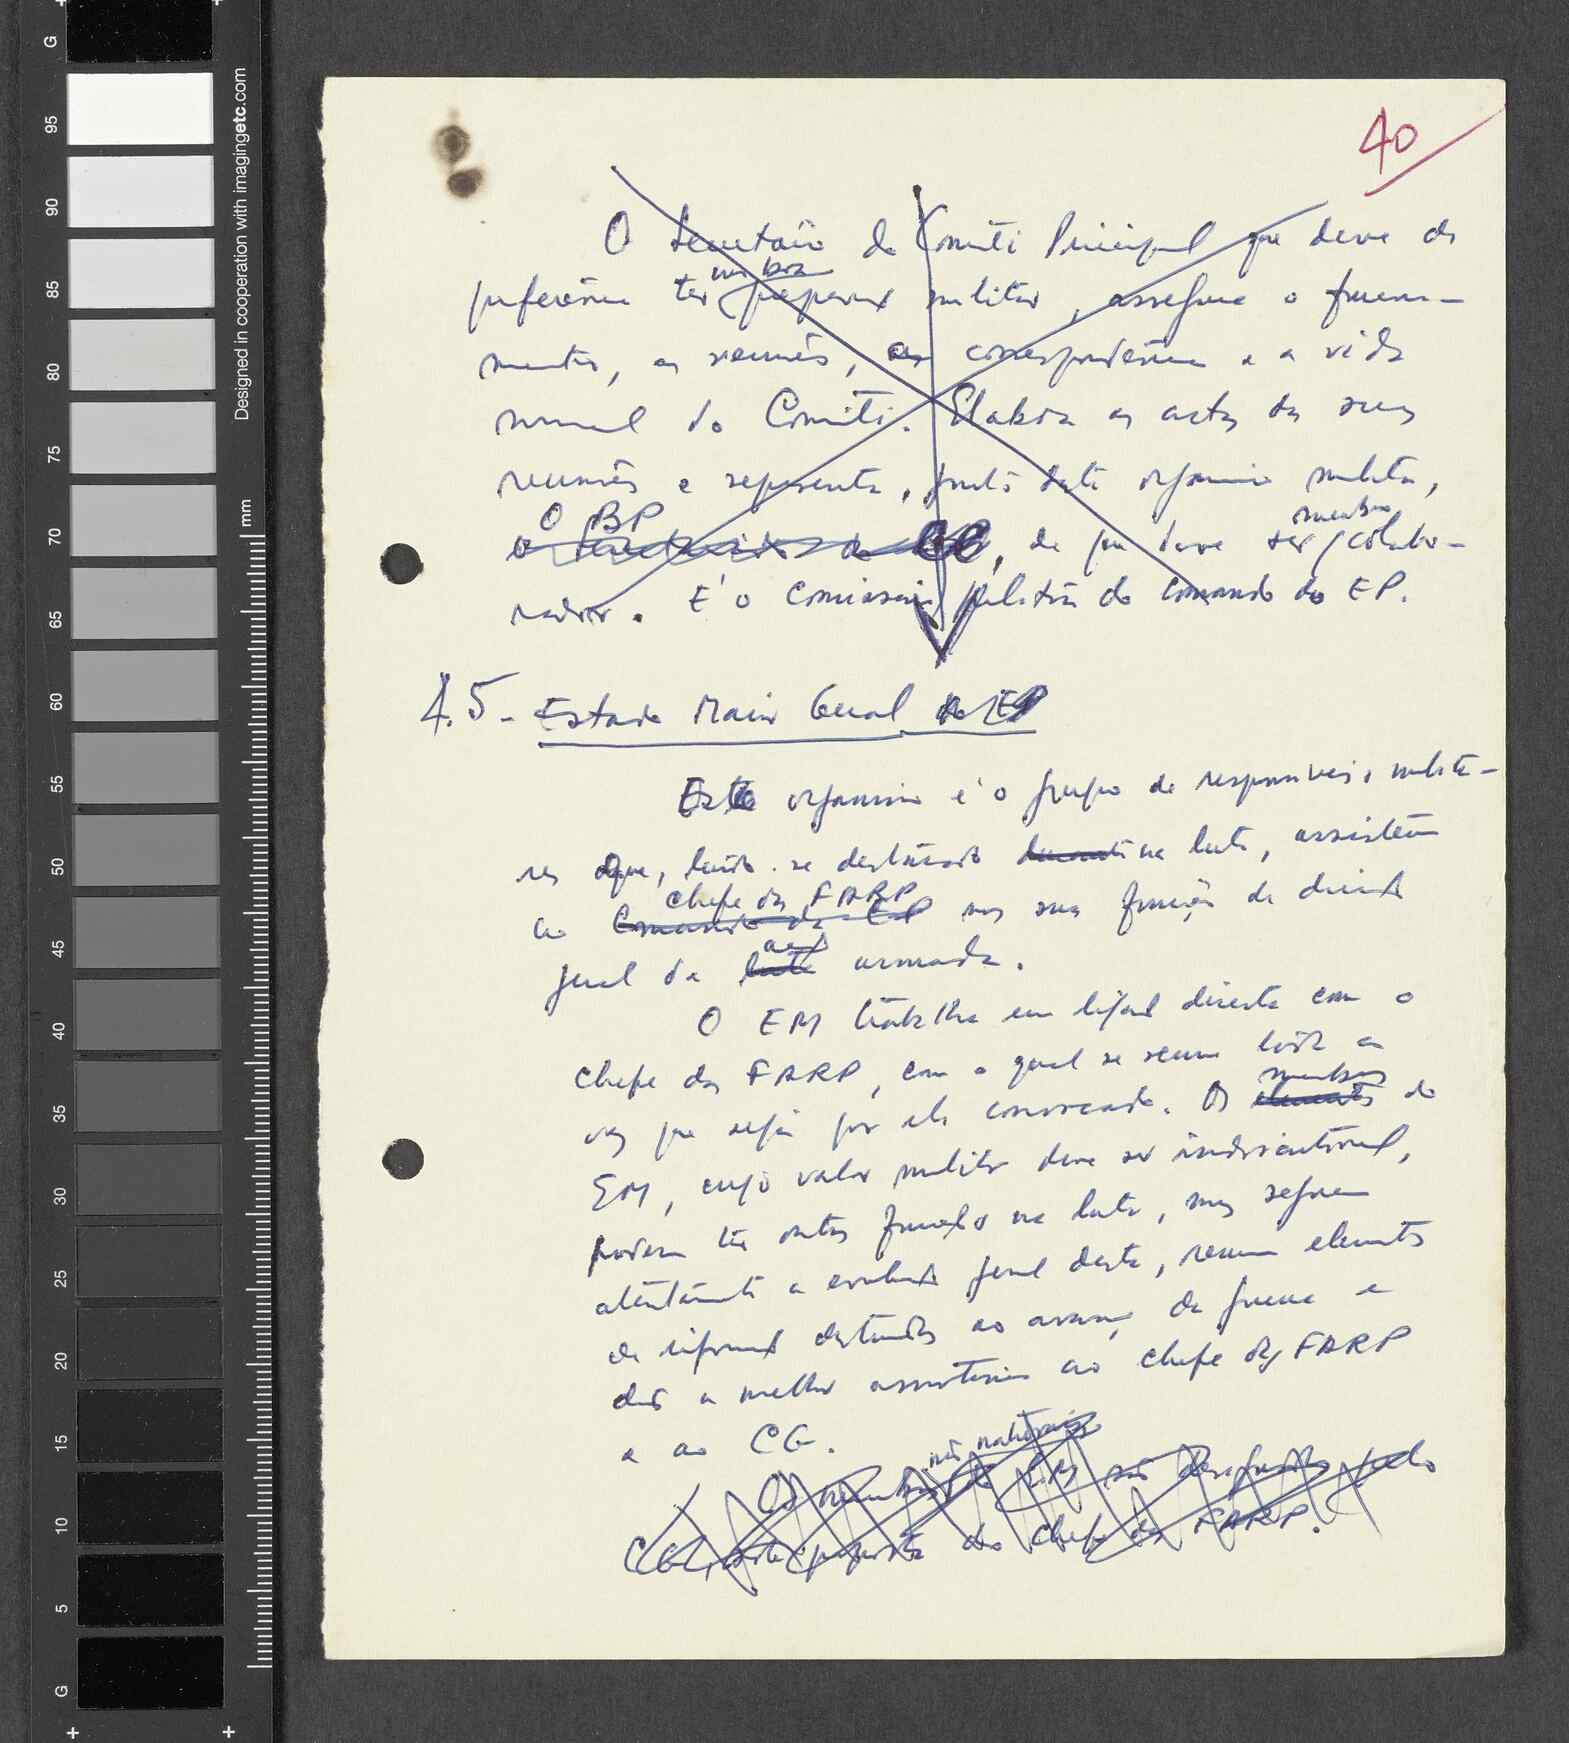 40
O Secretário do Comité Principal que deve de
preferência ter uma boa preparação militar, assegura o funciona-
mento, as reuniões, a correspondência e a vida
normal do Comité. Elabora as actas das suas
reuniões e representa, junto deste organismo militar,
O BP
de que deve ser membro colabo-
rador. É o Comissário político do Comando do EP.
4.5 - Estado Maior Geral do EP
Este organismo é o grupo de responsáveis milita-
res que, tendo-se destacado durante na luta, assistem
chefe das FARP
ao Comando do EP nas suas funções de direcção
acção
geral da luta armada.
O EM trabalha em ligação directa com o
chefe das FARP, com o qual se reune toda a
membros
vez que seja por ele convocado. Os elementos do
EM, cujo valor militar deve ser indiscutível,
podem ter outras funções na luta, mas seguem
atentamente a evolução geral desta, reunem elementos
de informação destinados ao avanço da guerra e
dão a melhor assistência ao chefe das FARP
e ao CG.
Os membros do EM são designados pelo
CG, sob proposta do chefe das FARP.
G
95
90
85
80
75
70
65
60
55
50
45
40
35
30
25
20
15
10
5
G
mm
Designed in cooperation with imagingetc.com